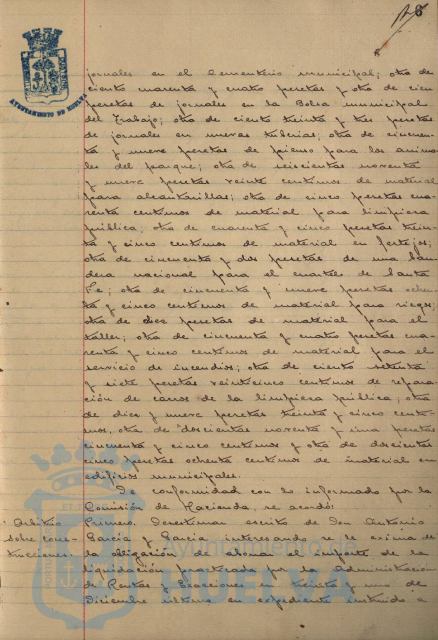 18
AYUNTAMIENTO DE HUELVA
jornales en el Cementerio municipal; otra de
ciento cuarenta y cuatro pesetas y otra de cien
pesetas de jornales en la Bolsa municipal
del Trabajo; otra de ciento treinta y tres pesetas
de jornales en nuevas tuberias; otra de cincuen-
ta y nueve pesetas de pienso para los anima-
les del parque; otra de seiscientas noventa
y nueve pesetas veinte centimos de material
para alcantarillas; otra de cinco pesetas cua-
renta centimos de material para limpieza
pública; otra de cuarenta y cinco pesetas trein-
ta y cinco centimos de material en festejos;
otra de cincuenta y dos pesetas de una ban-
dera nacional para el cuartel de Santa
Fe; otra de cincuenta y nueve pesetas ochen-
ta y cinco centimos de material para riegos;
otra de diez pesetas de material para el
taller; otra de cincuenta y cuatro pesetas cua-
renta y cinco centimos de material para el
servicio de incendios; otra de ciento setenta
y siete pesetas veinticinco centimos de repara-
ación de carros de la limpieza pública; otra
de diez y nueve pesetas treinta y cinco centi-
mos, otra de doscientas noventa y una pesetas
cincuenta y cinco centimos y otra de doscientas
cinco pesetas ochenta centimos de material en
edificios municipales.
De conformidad con lo informado por la
Comisión de Hacienda, se acordó:
Arbitrio sobre cons-trucciones.
Primero. Desestimar escrito de Don Antonio
Garcia y Garcia interesando se le exima de
la obligación de abonar el importe de la
liquidación practicada por la Administración
de Rentas y Exacciones en treinta y uno de
Diciembre último en expediente instruido a
Ayuntamiento de
HUELVA